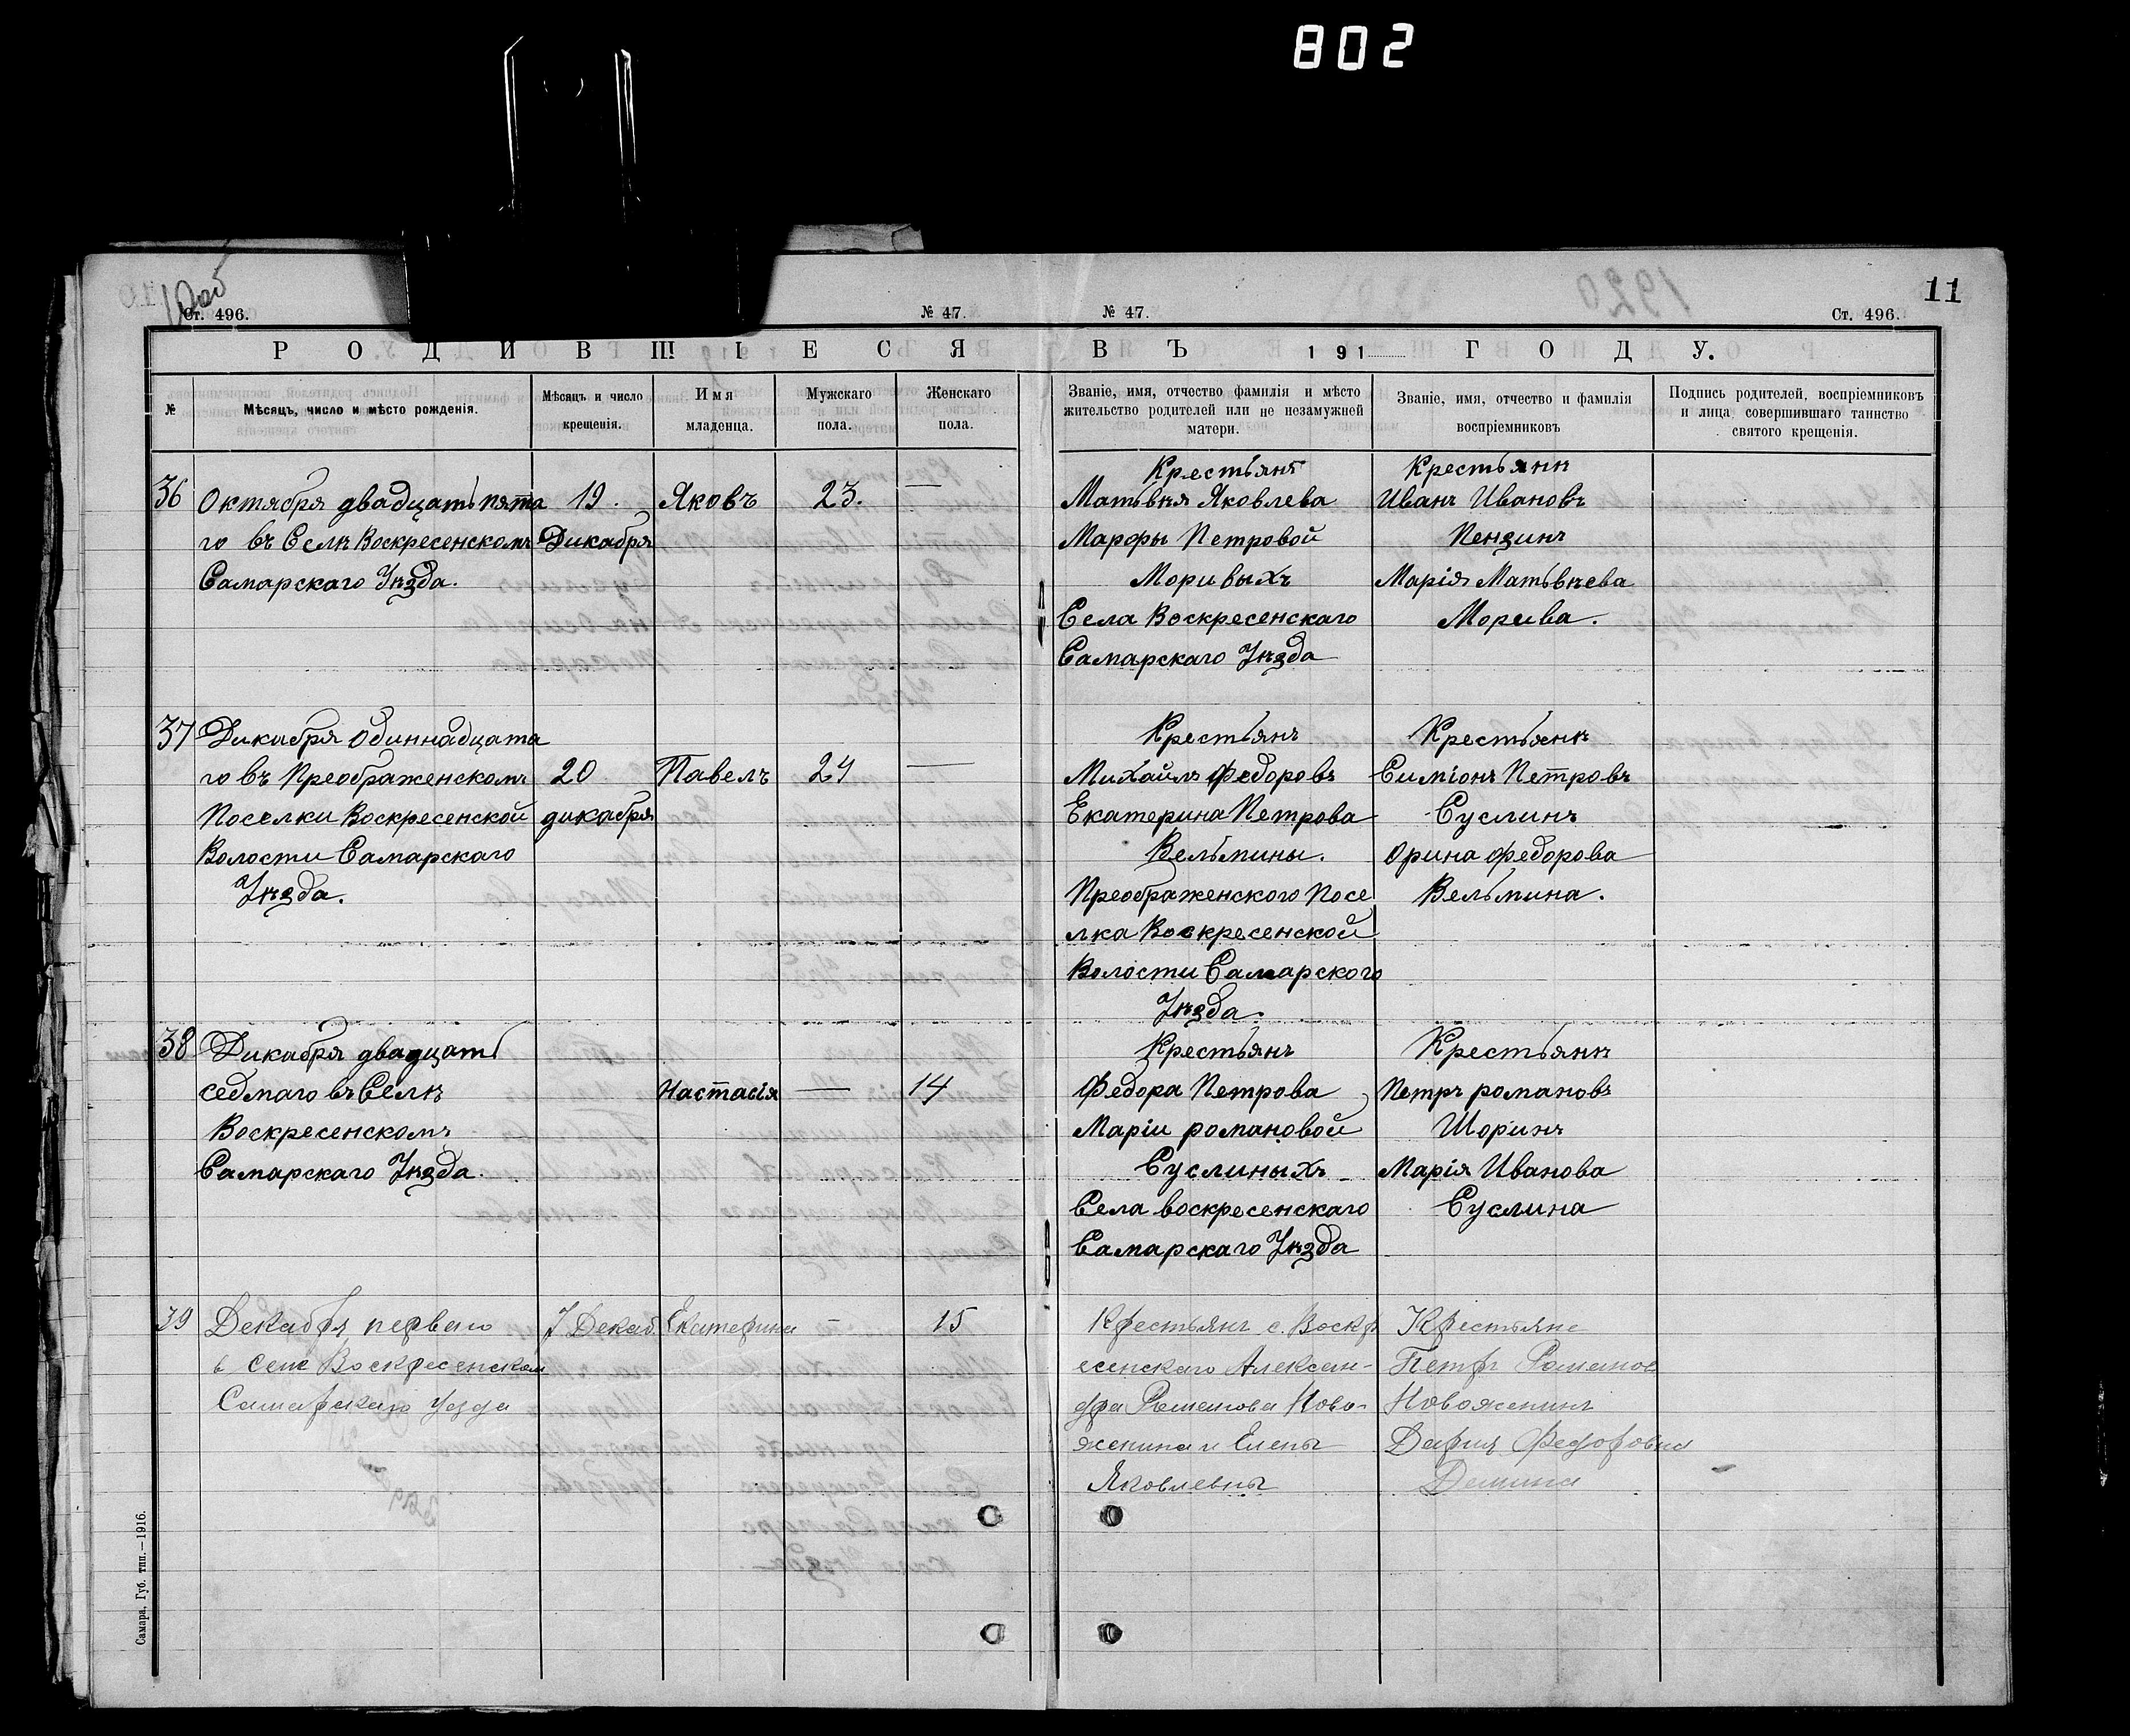 802
11
Ст. 496.
№ 47.
№ 47.
Ст. 496.
РОДИВШІЕСЯ
ВЪ 191 ГОДУ.
№
Мѣсяцъ, число и мѣсто рожденія.
Мѣсяцъ и число
крещенія.
Имя
младенца.
Мужскаго
пола.
Женскаго
пола.
Званіе, имя, отчество фамилія и мѣсто
жительство родителей или не незамужней
матери.
Званіе, имя, отчество и фамилія
воспріемниковъ
Подпись родителей, воспріемниковъ
и лица, совершившаго таинство
святого крещенія.
36
Октября двадцать пята
го въ Селѣ Воскресенскомъ
Самарскаго Уѣзда.
19.
Дикабря
Яковъ
23.
—
Крестьянъ
Матьвѣя Яковлева
Марфы Петровой
Моривыхъ
Села Воскресенскаго
Самарскаго Уѣзда
Крестьянѣ
Иванъ Ивановъ
Пензинъ
Марія Матьвѣева
Морива.
37
Дикабря Одиннадцата
го въ Преображенскомъ
Поселки Воскресенской
Волости Самарскаго
Уѣзда.
20
дикабря
Павелъ
24
—
Крестьянъ
Михаилъ Федоровъ
Екатерина Петрова
Вельмины.
Преображенского Посе
лка Воскресенской
Волости Самарского
Уѣзда.
Крестьянѣ
Симіонъ Петровъ
Суслинъ
Орина Федорова
Вельмина.
38
Дикабря двадцать
седмаго въ Селѣ
Воскресенскомъ
Самарскаго Уѣзда.
Настасія
—
14
Крестьянъ
Федора Петрова
Маріи романовой
Суслиныхъ
Села воскресенскаго
Самарскаго Уѣзда
Крестьянѣ
Петръ романовъ
Шоринъ
Марія Иванова
Суслина
39
Декабря перваго
в селе Воскресенском
Самарскаго Уезда
7 Декаб.
Екатерина
—
15
Крестьянъ с. Воскр
есенскаго Алексан-
дра Романова Ново-
женина и Елены
Яковлевны
Крестьяне
Петръ Романов
Новоженинъ
Дария Федоровна
Демина
Самара, Губ. тип.—1916.